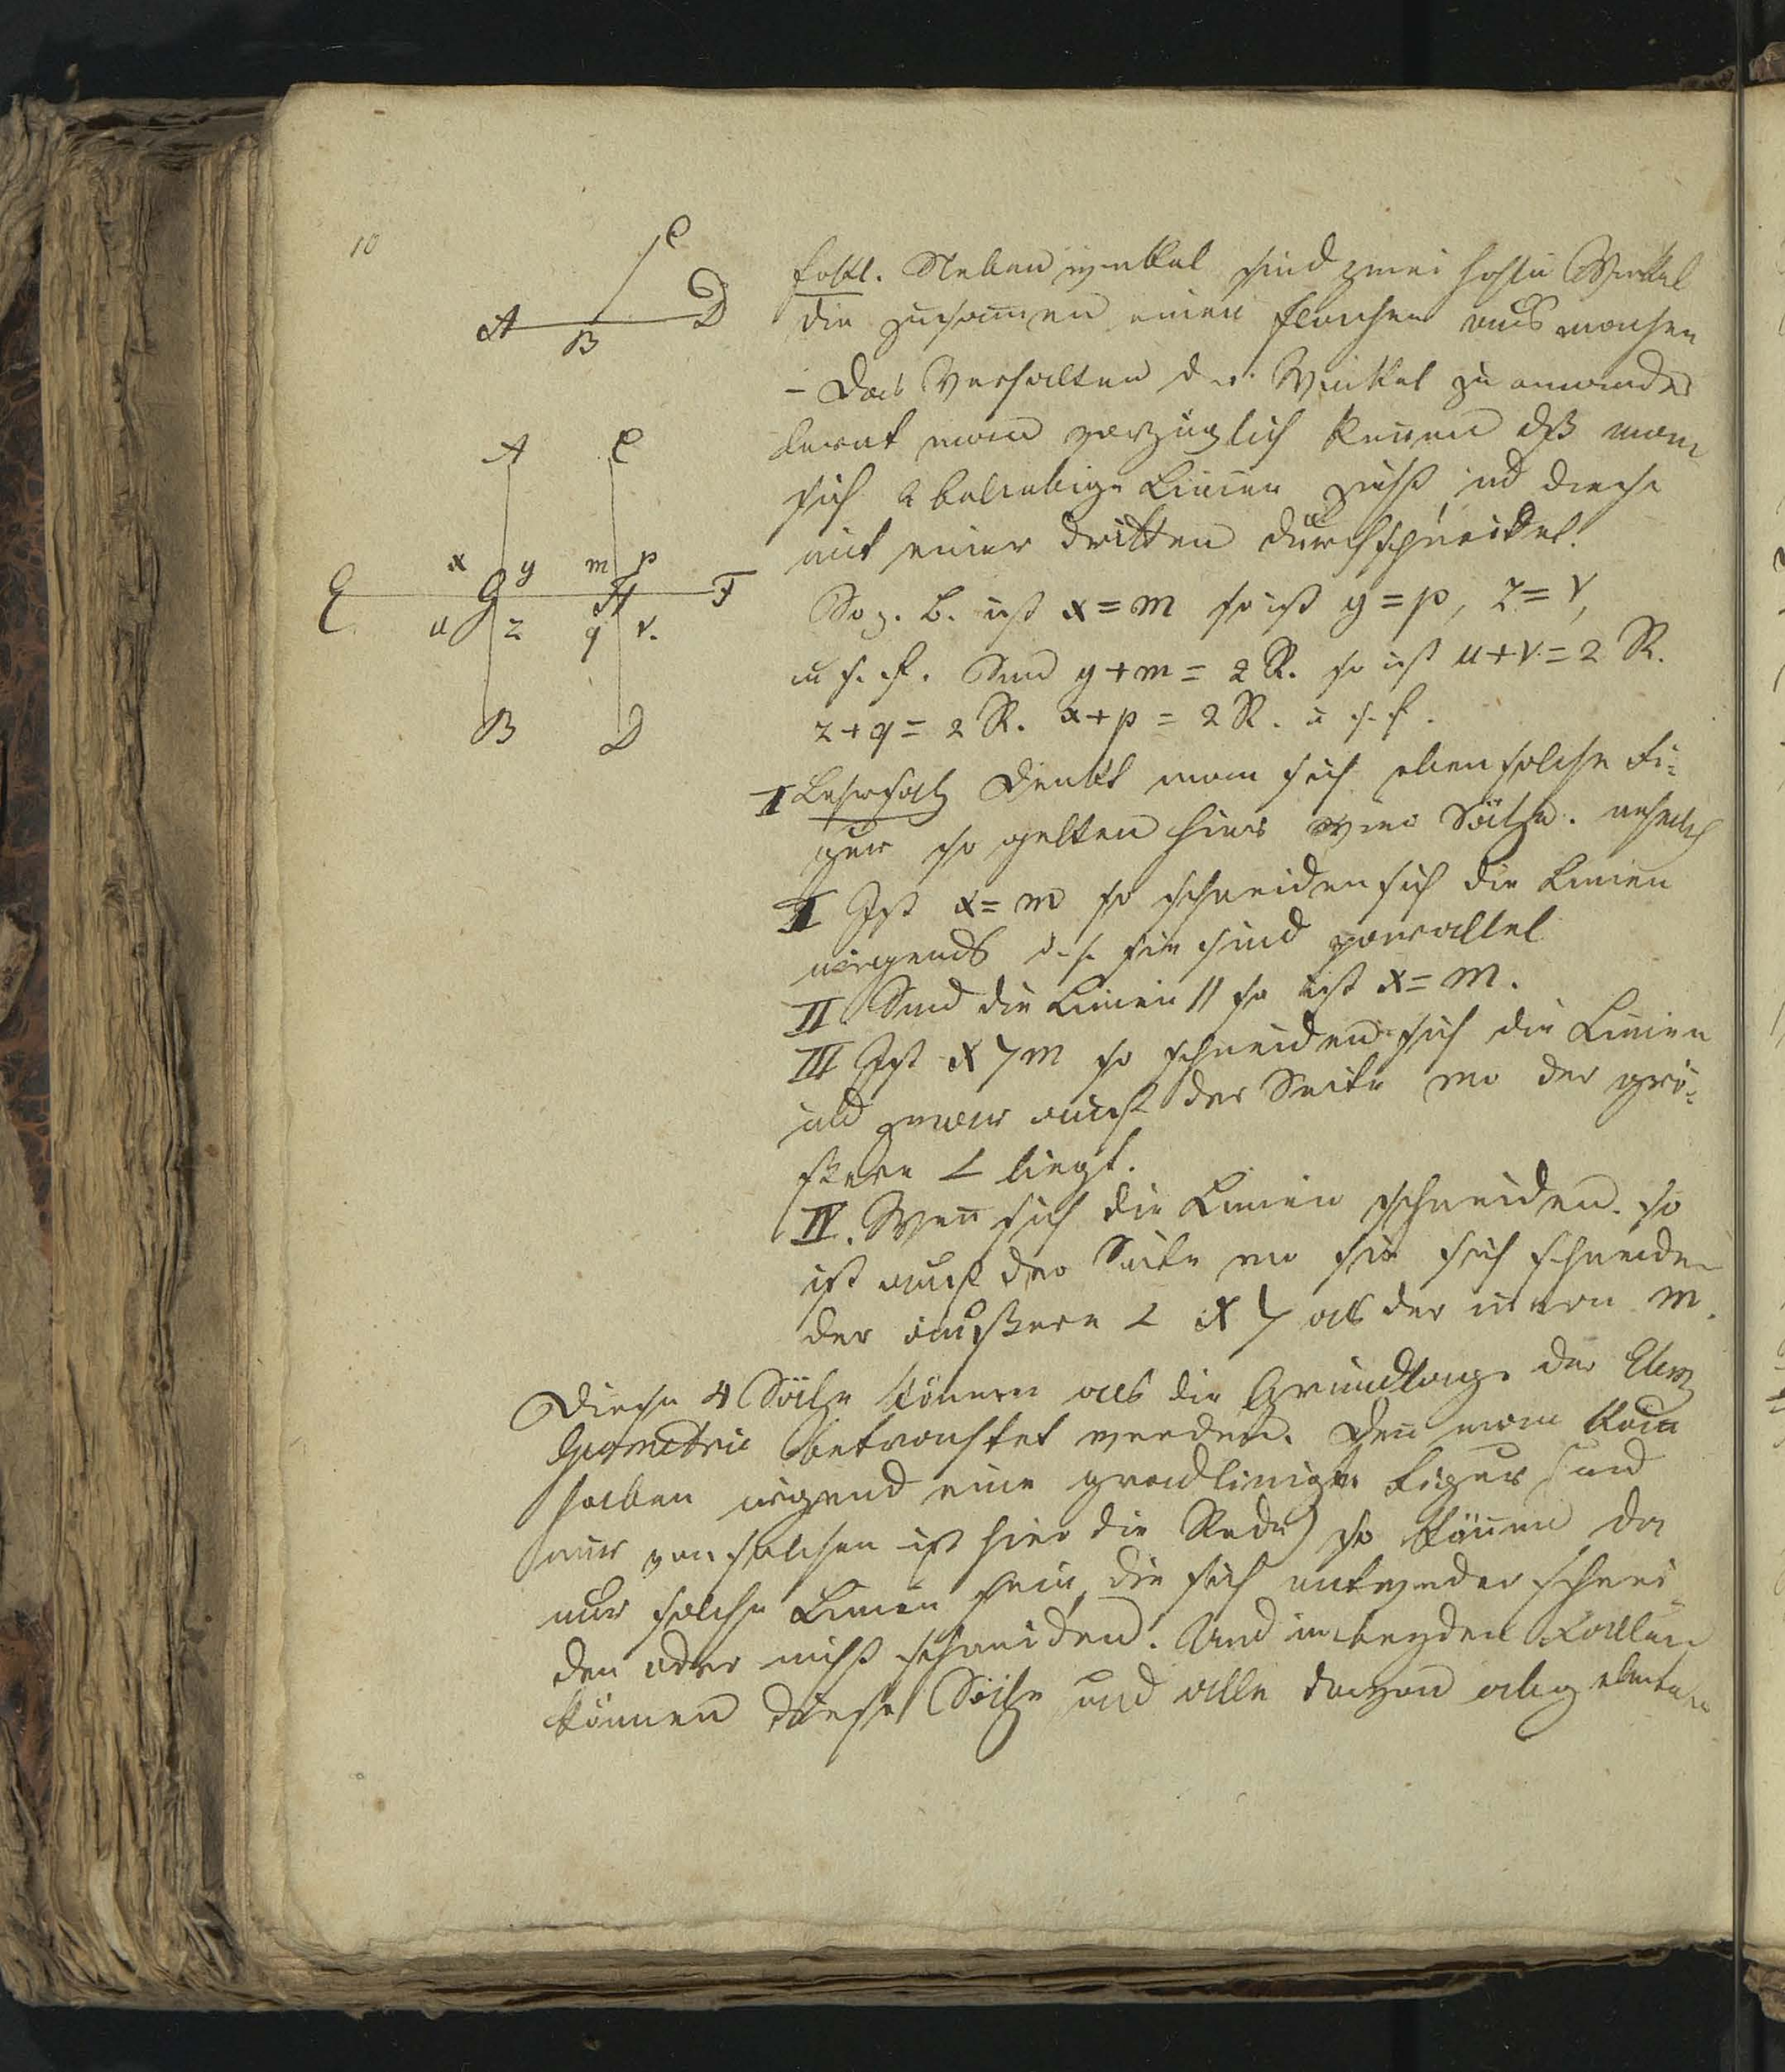 10
C
A B D
Erkl. Nebenwinkel sind zwei hohle Winkel
die zusamen einen flachen ausmachen
– Das Verhalten der Winkel zu einander
lernt man vorzüglich kenen dß man
sich 2 beliebige Linien zieht und diese
mit einer dritten durchschneidet.
A C
x y m p
E G H F
u z q v.
B D
So z. B. ist x = m so ist y = p, z = v,
u s. f. Sind y + m = 2 R. so ist u + v = 2 R.
z + q = 2 R. x + p = 2 R. u s. f.
I Lehrsatz Denkt man sich eben solche Fi-
gur so gelten hier vier Sätze. nehmlich
I Ist x = m so schneiden sich die Linien
nirgends d. h. sie sind parallel
II Sind die Linien || so ist x = m.
III Ist x > m so schneiden sich die Linien
und zwar auf der Seite wo der grö-
ßere ∠ liegt.
IV. Wen sich die Linien schneiden. so
ist auf der Seite wo sie sich schneiden
der äußere ∠ x > als der innere m.
Diese 4 Sätze können als die Grundlage der Elem
Geometrie betrachtet werden. Den man kan
haben irgend eine gradlinige Figur (und
nur von solchen ist hier die Rede) so könen da
nur solche Linien sein, die sich entweder schnei-
den oder nicht schneiden. Und in beyden Fällen
können diese Sätze und alle davon abgeleiteten